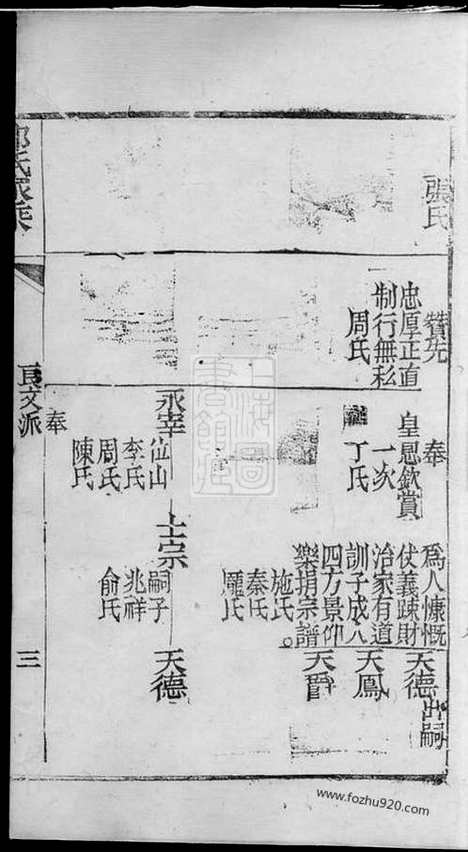 張氏
贊先
忠厚正直
制行無私
周氏
奉
皇恩欽賞
一次
丁氏
爲人慷慨
仗義疎財
治家有道
訓子成人
四方景仰
樂捐宗譜
施氏
秦氏
龐氏
天德出嗣
天鳳
天爵
永幸
位山
李氏
周氏
陳氏
士宗
嗣子
兆祥
俞氏
天德
奉
氏家乘
良文派
三
上海圖書館藏
www.fozhu920.com